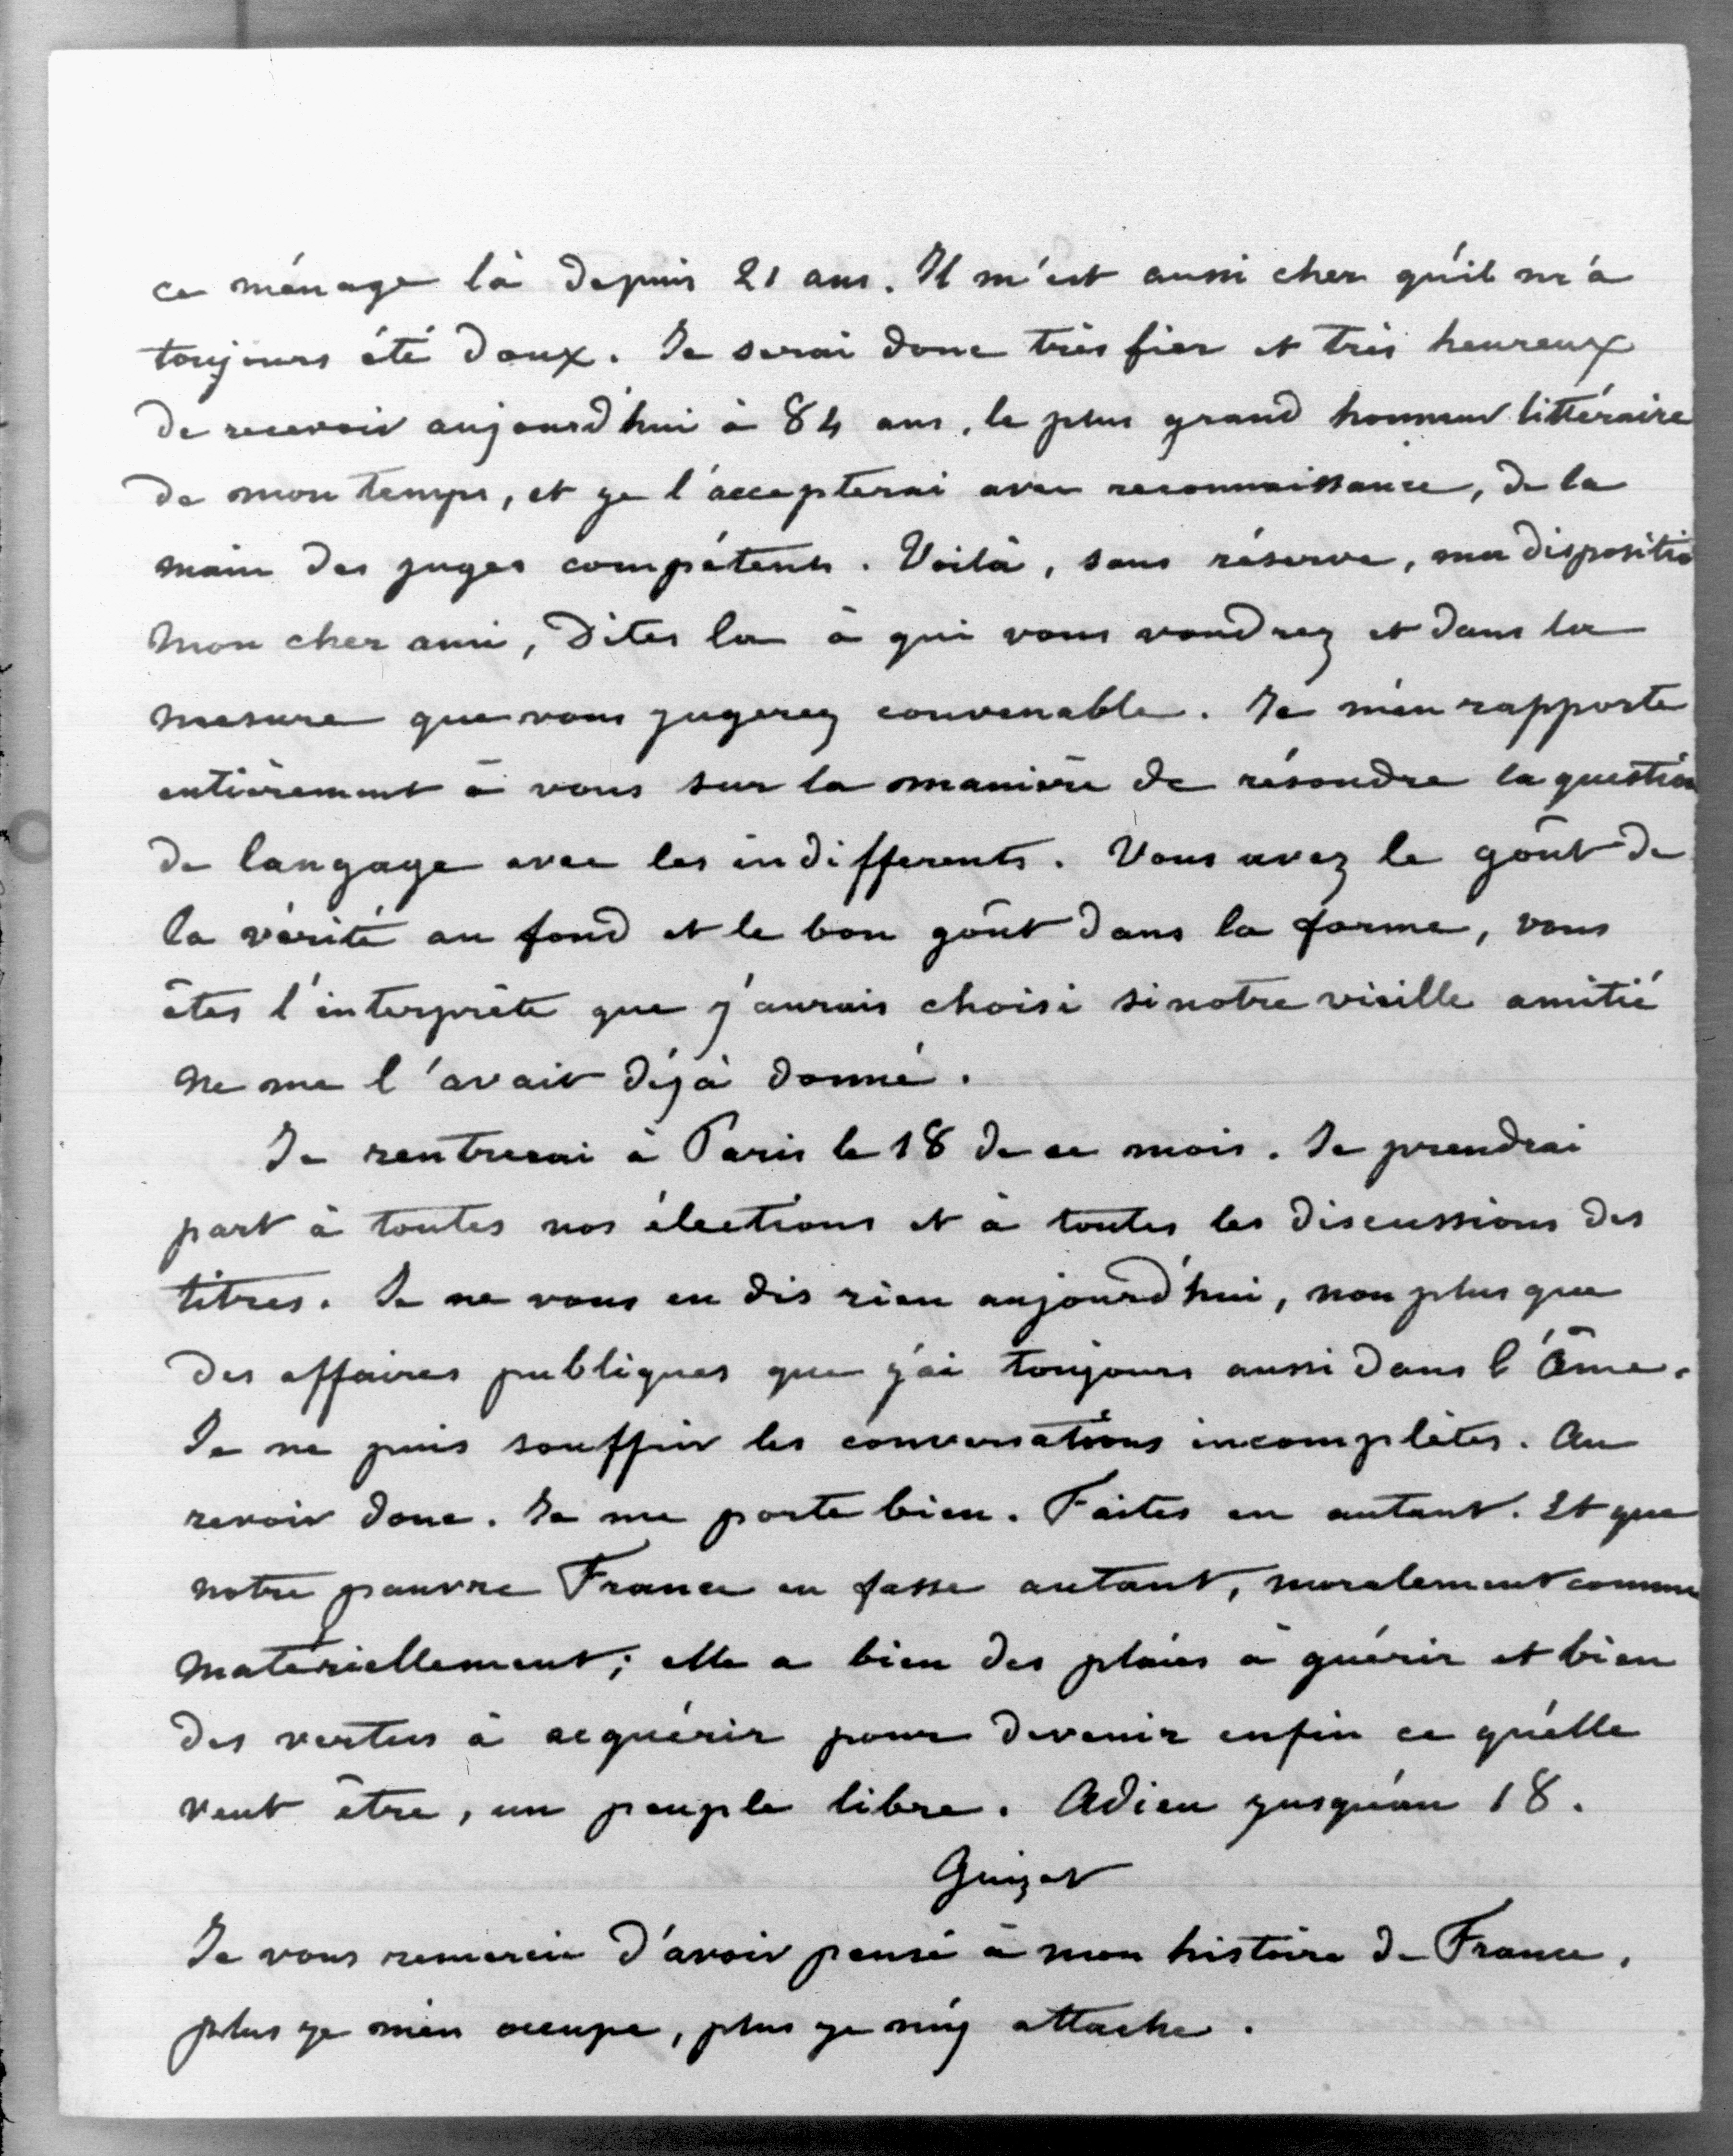 ce ménage là depuis 21 ans. Il m'est aussi cher qu'il m'a
toujours été doux. Je serai donc très fier et très heureux
de recevoir aujourd'hui à 84 ans, le plus grand honneur littéraire
de mon temps, et je l'accepterai avec reconnaissance, de la
main des juges compétents. Voilà, sans réserve, ma dispositio
mon cher ami, Dites la à qui vous voudrez et dans la
mesure que vous jugerez convenable. Je m'en rapporte
entièrement à vous sur la manière de résoudre la question
de langage avec les indifferents. Vous avez le goût de
la vérité au fond et le bon goût dans la forme, vous
êtes l'interprète que j'aurais choisi si notre vieille amitié
ne me l'avait déjà donné.
Je rentrerai à Paris le 18 de ce mois. Je prendrai
part à toutes nos élections et à toutes les discussions des
titres. Je ne vous en dis rien aujourd'hui, non plus que
des affaires publiques que j'ai toujours aussi dans l'âme.
Je ne puis souffrir les conversations incomplètes. Au
revoir donc. Je me porte bien. Faites en autant. Et que
notre pauvre France en fasse autant, moralement comme
matériellement; elle a bien des plaies à guérir et bien
des vertus à acquérir pour devenir enfin ce qu'elle
veut être, un peuple libre. Adieu jusqu'au 18.
Guizot
Je vous remercie d'avoir pensé à mon histoire de France,
plus je m'en occupe, plus je m'y attache.